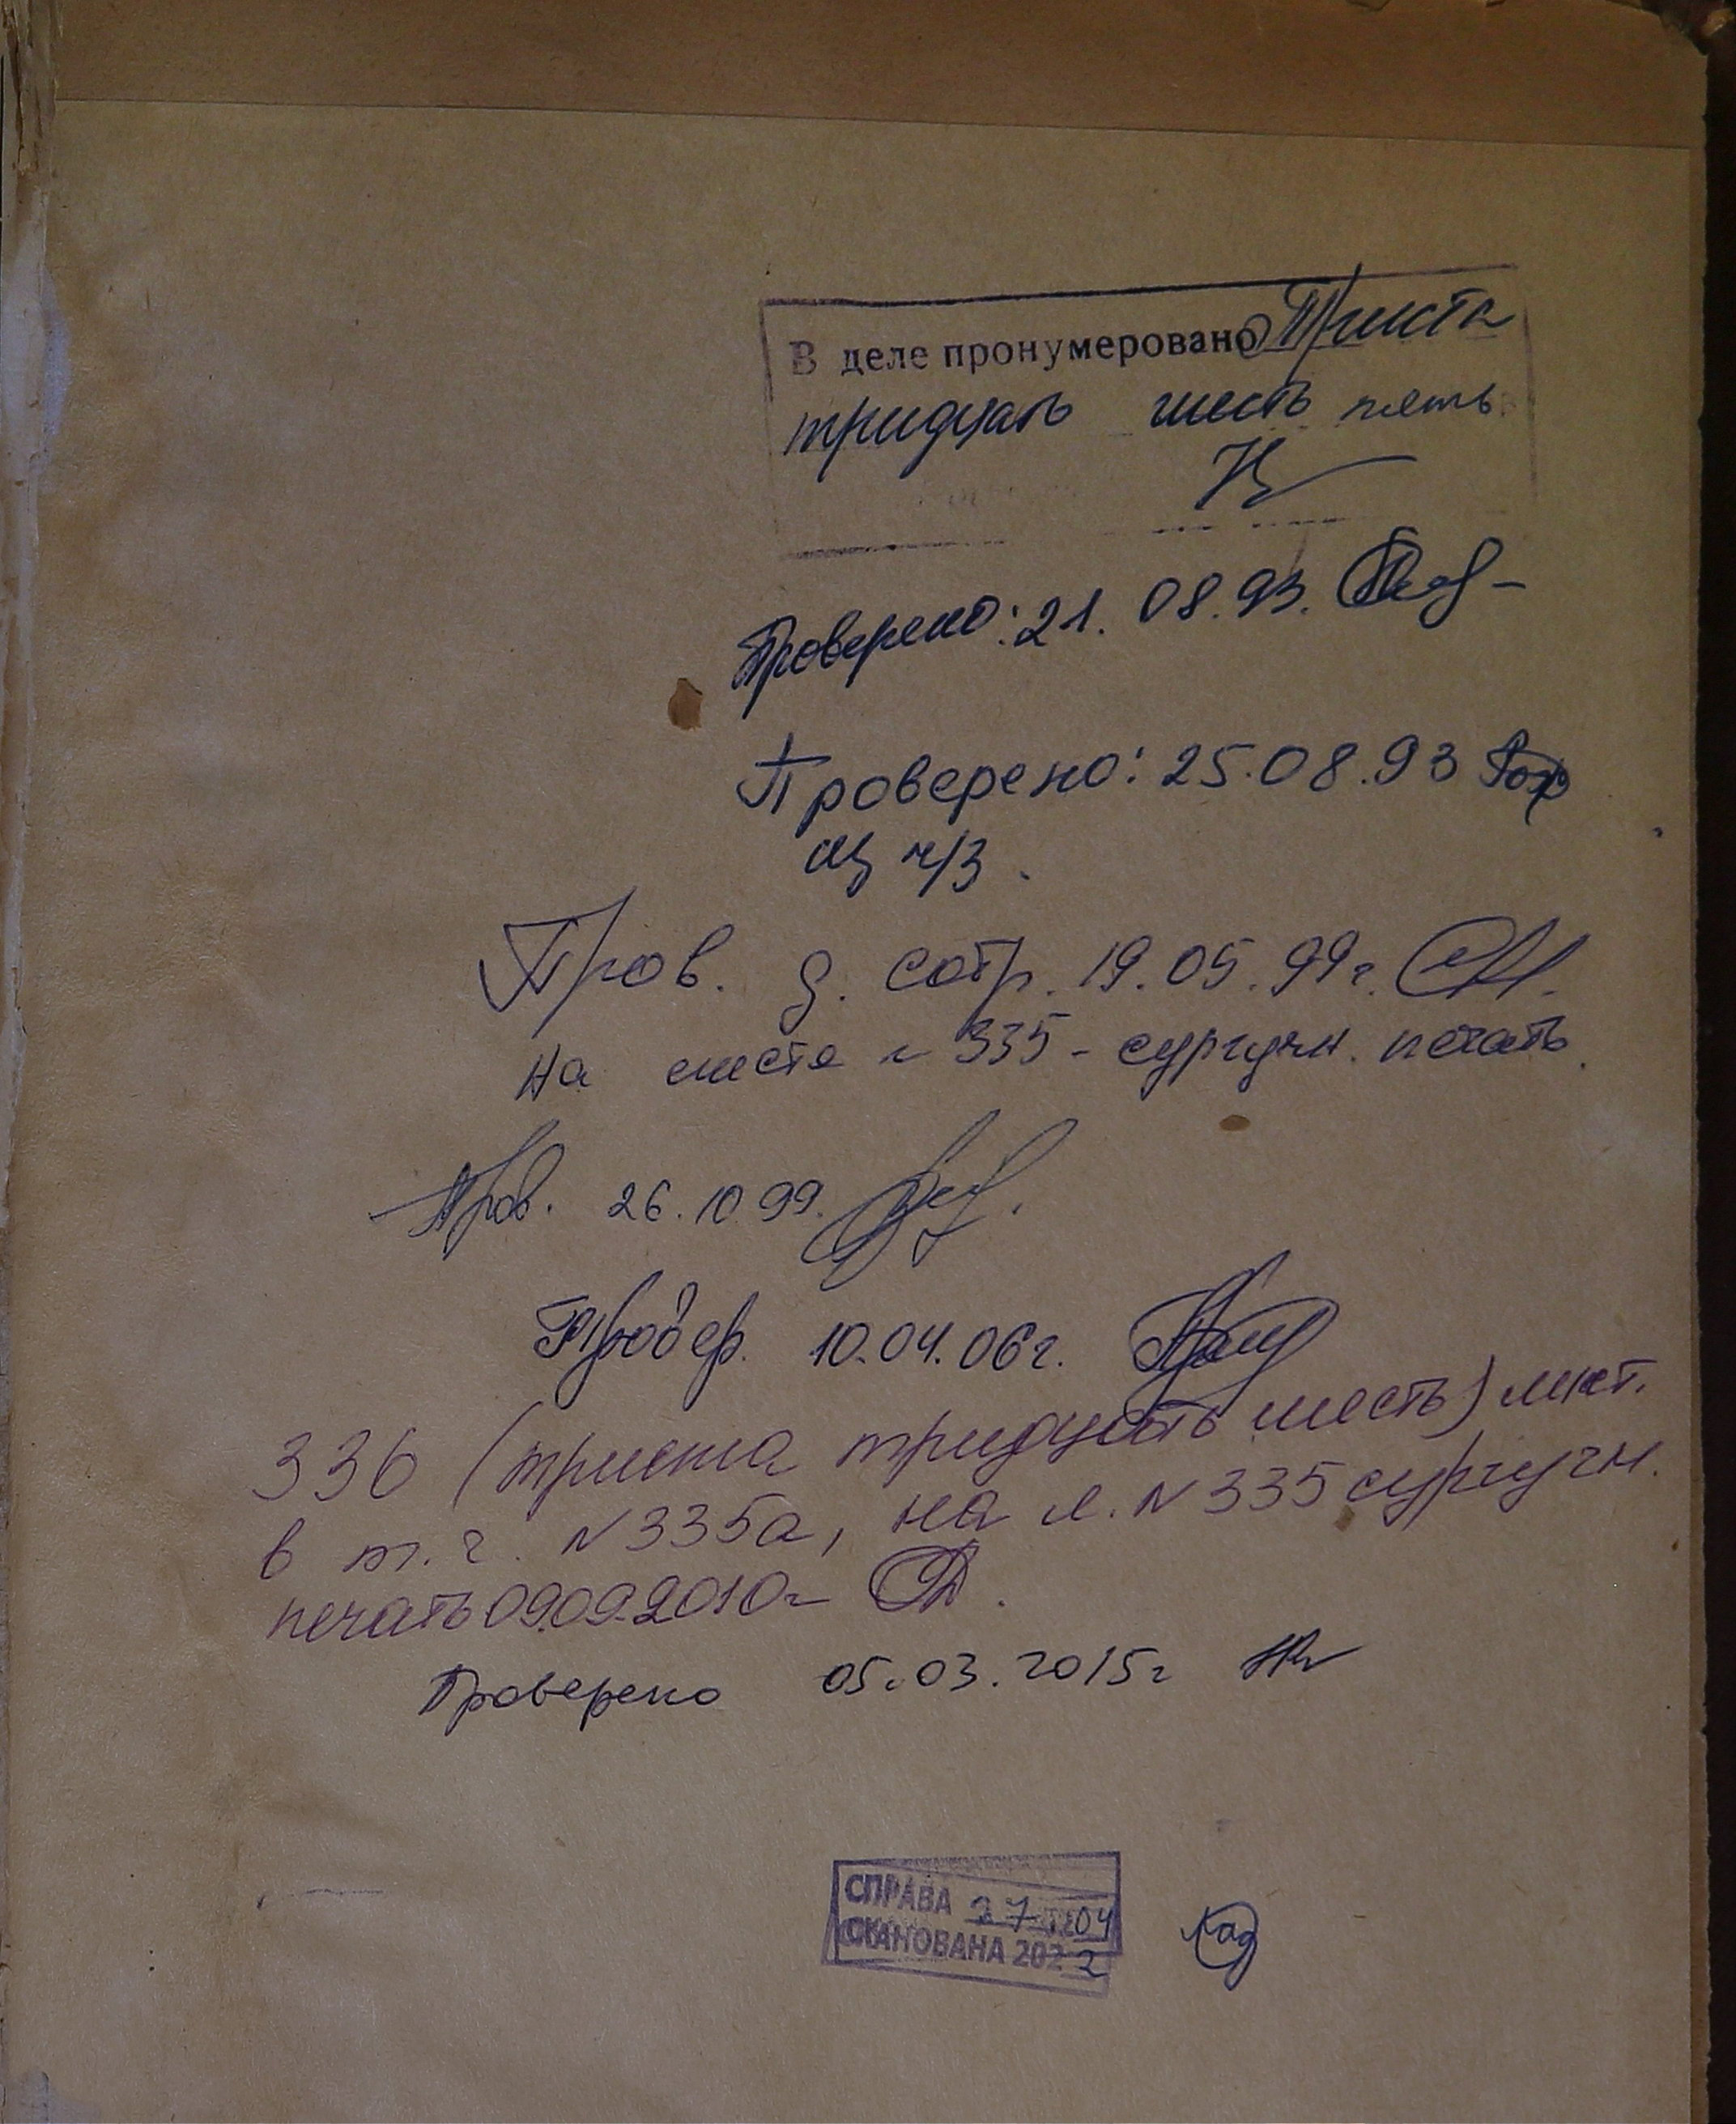 В деле пронумеровано Триста
тридцать шесть пять
Проверено: 21. 08. 93.
Проверено: 25.08.93
ч/з.
Пров. д. сотр. 19.05.99г.
На листе 335 - сургучн. печать.
Пров. 26.10 99.
Провер. 10.04.06г.
336 (триста тридцать шесть) лист.
в т.ч. N335а, на л. N335 сургучн.
печать 09.09.2010г
Проверено 05.03.2015г
СПРАВА 27 04
СКАНОВАНА 2022